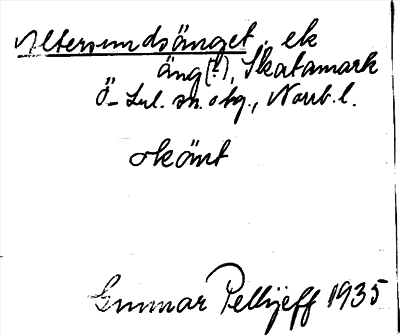 Altersundsänget, ek
äng(?), Skatamark
Ö-Lul. sn. o hg., Norrb. l.
okänt
Gunnar Pellijeff 1935